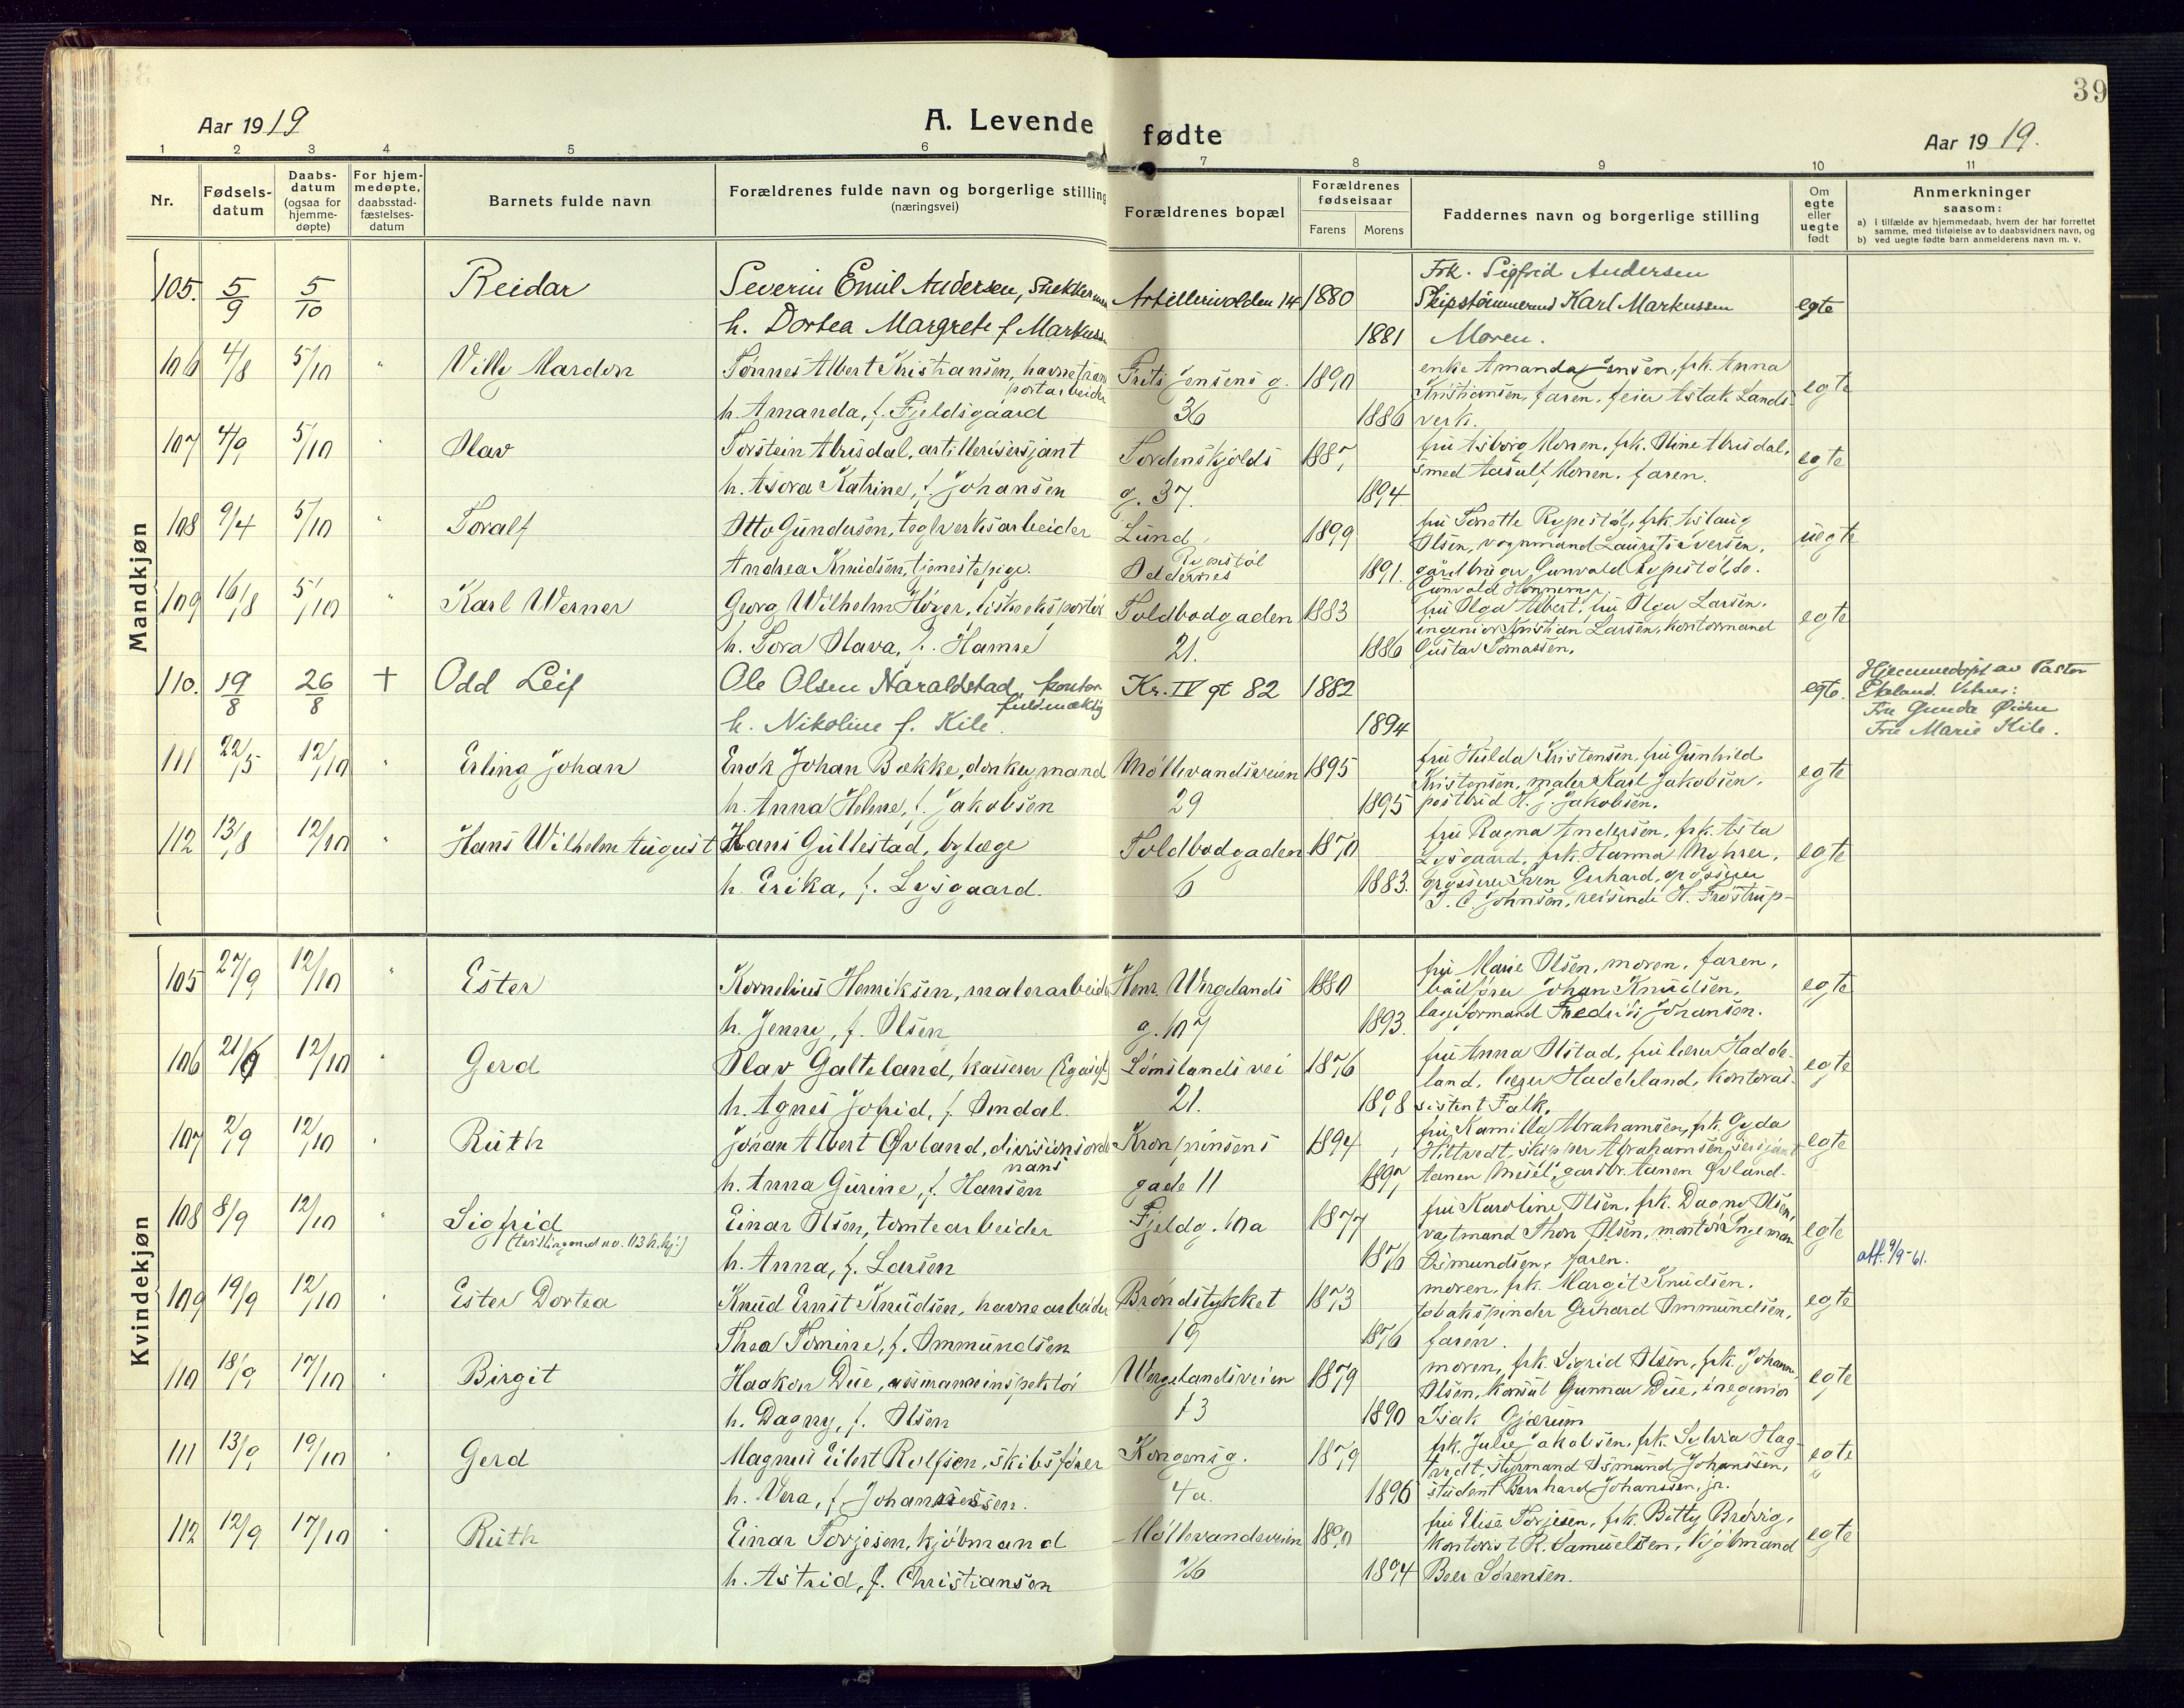 39
Aar 1919
A. Levende fødte
Aar 1919.
1 2 3 4 5 6 7 8 9 10 11
Nr.
Fødselsdatum
Daabsdatum (ogsaa for hjemmedøpte)
For hjemmedøpte, daabsstadfæstelsesdatum
Barnets fulde navn
Forældrenes fulde navn og borgerlige stilling (næringsvei)
Forældrenes bopæl
Forældrenes fødselsaar
Farens Morens
Faddernes navn og borgerlige stilling
Om egte eller uegte født
Anmerkninger saasom:
a) i tilfælde av hjemmedaab, hvem der har forrettet samme, med tilføielse av to daabsvidners navn, og
b) ved uegte fødte barn anmelderens navn m. v.
Mandkjøn
105. 5/9 5/10 Reidar Severin Emil Andersen, Artillerivolden 14 1880 Frk. Sigfrid Andersen
Skipstømmermd Karl Markussen egte
h. Dortea Margrete f Markussen 1881 Moren.
106 4/8 5/10 " Villy Mardon Tønnes Albert Kristiansen, havnetrans Frits Jensens g. 1890 enke Amanda Jensen, frk. Anna
portarbeider Kristiansen, faren, feier Aslak Lands- egte
h. Amanda, f. Fjeldsgaard 36 1886 verk.
107 4/9 5/10 " Olav Torstein Abrisdal, artillerisersjant Tordenskjolds 1887 fru Asborg Monen, frk. Stine Abrisdal, egte
smed Aasulf Monen, faren.
h. Asora Katrine, f. Johansen g. 37. 1894
108 9/4 5/10 " Toralf Otto Gundersen, teglverksarbeider Lund, 1899 fru Tonette Rypestøl, frk. Aslaug uegte
Olsen, vognmand Laurits Iversen,
Andrea Knudsen, tjenestepige Rypestøl Oddernes 1891. gårdbruger Gunvald Rypestøl
109 16/8 5/10 " Karl Werner Georg Wilhelm Høyer, Toldbodgaden 1883 fru Olga Albert, fru Olga Larsen. egte
ingeniør Kristian Larsen, kontormand
h. Tora Olava, f. Hamre 21. 1886 Gustav Tomassen.
110. 19/8 26/8 + Odd Leif Ole Olsen Naraldstad, kontor Kr. IV gt 82 1882 egte. Hjemmedøpt av Pastor
fuldmæktig Ekeland. Vitner:
h. Nikoline f. Kile. 1894 Fru Gunda Øidne
Fru Marie Kile.
111 22/5 12/10 " Erling Johan Enok Johan Bække, donkeymand Møllevandsveien 1895 fru Hulda Kristensen, fru Gunhild egte
Kristensen, maler Karl Jakobsen,
h. Anna Helene, f. Jakobsen 29 1895 postbud H. J. Jakobsen.
112 13/8 12/10 " Hans Wilhelm August Hans Gullestad, bylæge Toldbodgaden 1870 fru Ragna Andersen, frk. Asta egte
Lysgaard, frk. Hanna Myhrer,
h. Erika, f. Lysgaard. 6 1883. grosserer Sven Gerhard, grosserer
J. C. Johnsen, reisende H. Frøstrup-
Kvindekjøn
105 27/9 12/10 " Ester Kornelius Henriksen, malerarbeider Henr. Wergelands 1880 fru Marie Olsen, moren, faren, egte
baadfører Johan Knudsen,
h. Jenny, f. Olsen g. 107 1893. lagerformand Fredrik Johansen.
106 21/9 12/10 " Gerd Olav Galteland, kasserer Lømslands vei 1876 fru Anna Ulstad, fru lærer Hadde- egte
land, lærer Haddeland, kontoras-
h. Agnes Jofrid, f. Omdal. 21. 1898 sistent Falk.
107 2/9 12/10 " Ruth Johan Albert Øvland, divisionsordo Kronprinsens 1894 fru Kamilla Abrahamsen, frk. Gyda egte
nans Hiltvedt, skipper Abrahamsen, sersjant
h. Anna Gurine, f. Hansen gade 11 1897 Aanen Mesel, gardbr. Aanen Øvland.
108 8/9 12/10 " Sigfrid Einar Olsen, tomtearbeider Fjeldg. 10a 1877 fru Karoline Olsen, frk. Dagny Olsen, egte
(tvilling med no. 113 h.kj.) vagtmand Thor Olsen, montør Ingeman
h. Anna, f. Larsen 1876 Osmundsen, faren. att. 9/9-61.
109 19/9 12/10 " Ester Dortea Knud Ernst Knudsen, havnearbeider Brøndstykket 1873 moren, frk. Margit Knudsen. egte
tobakspinder Gerhard Ommundsen,
Thea Tomine, f. Ommundsen 19 1876 faren.
110 18/9 17/10 " Birgit Haakon Due, assuranceinspektør Wergelandsveien 1879 moren, frk. Sigrid Olsen, frk. Johanne egte
Olsen, konsul Gunnar Due, ingeniør
h. Dagny, f. Olsen 13 1890 Isak Gjærum
111 13/9 19/10 " Gerd Magnus Eilert Rolfsen, skibsfører Kongensg. 1879 frk. Julie Jakobsen, frk. Sylvia Hag- egte
tvedt, styrmand Osmund Johanssen,
h. Vera, f Johannessen. 4a. 1896 student Bernhard Johanssen, jr.
112 12/9 17/10 " Ruth Einar Torjesen, kjøbmand Møllevandsveien 1890 fru Elise Torjesen, frk. Betty Brøvig, egte
kontorist R. Samuelsen, kjøbmand
h. Astrid, f. Christiansen 1894 Beer Sørensen.